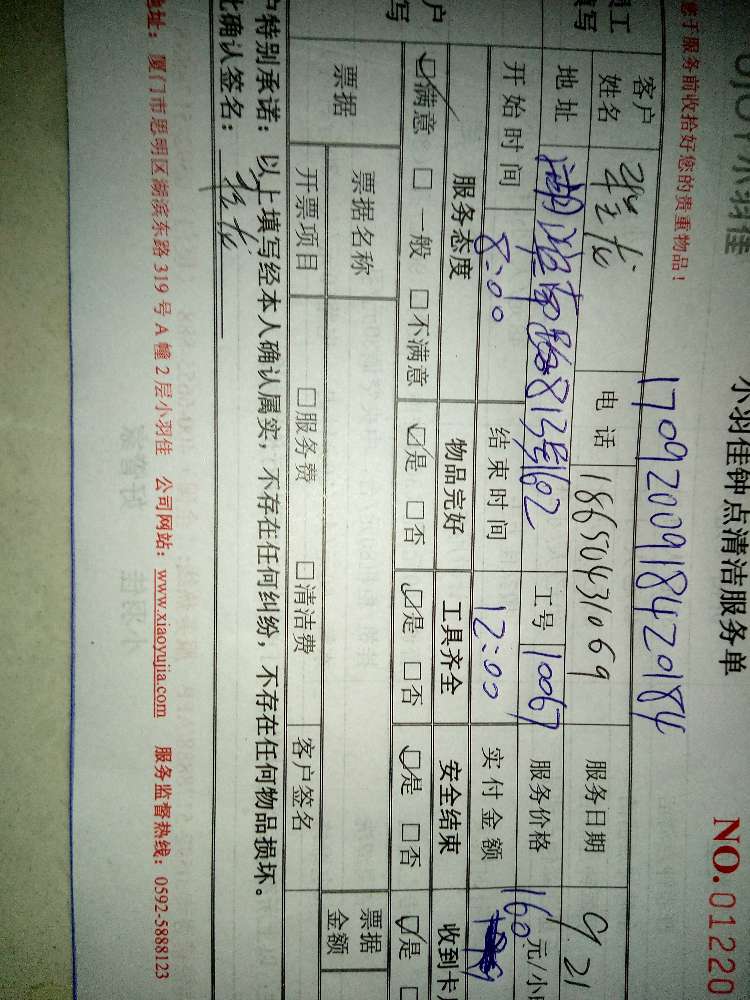 小羽佳 小羽佳钟点清洁服务单 NO.01220
您于服务前收拾好您的贵重物品! 1709200918420184
客户姓名 电话 18650431069 服务日期 9.21
地址 湖滨南路813号162 工号 10067 服务价格 160 元/小
开始时间 8:00 结束时间 12:00 实付金额
服务态度 物品完好 工具齐全 安全结束 收到卡
☑满意 □一般 □不满意 ☑是 □否 ☑是 □否 ☑是 □否 ☑是 □
票据 票据名称 票据金额
开票项目 □服务费 □清洁费 客户签名
户特别承诺:以上填写经本人确认属实,不存在任何纠纷,不存在任何物品损坏。
此确认签名:
地址:厦门市思明区湖滨东路319号A幢2层小羽佳 公司网站:www.xiaoyujia.com 服务监督热线:0592-5888123